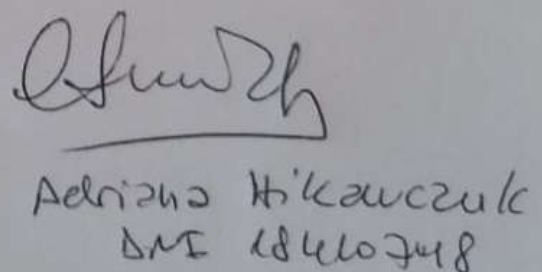 Adriana Hikawczuk
DNI 18410748